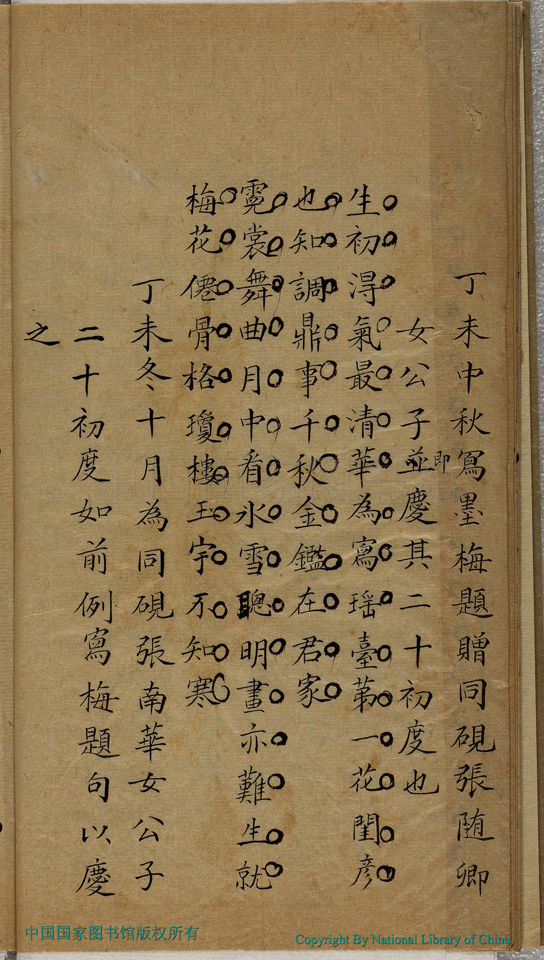 丁未中秋寫墨梅題贈同硯張随卿
女公子並慶其二十初度也
即
生初淂氣最清華為寫瑶臺苐一花閨彦
也知調鼎事千秋金鑑在君家
霓裳舞曲月中看冰雪聰明畫亦難生就
梅花僊骨格瓊樓玉宇不知寒
丁未冬十月為同硯張南華女公子
二十初度如前例寫梅題句以慶
之
中国国家图书馆版权所有
Copyright By National Library of China